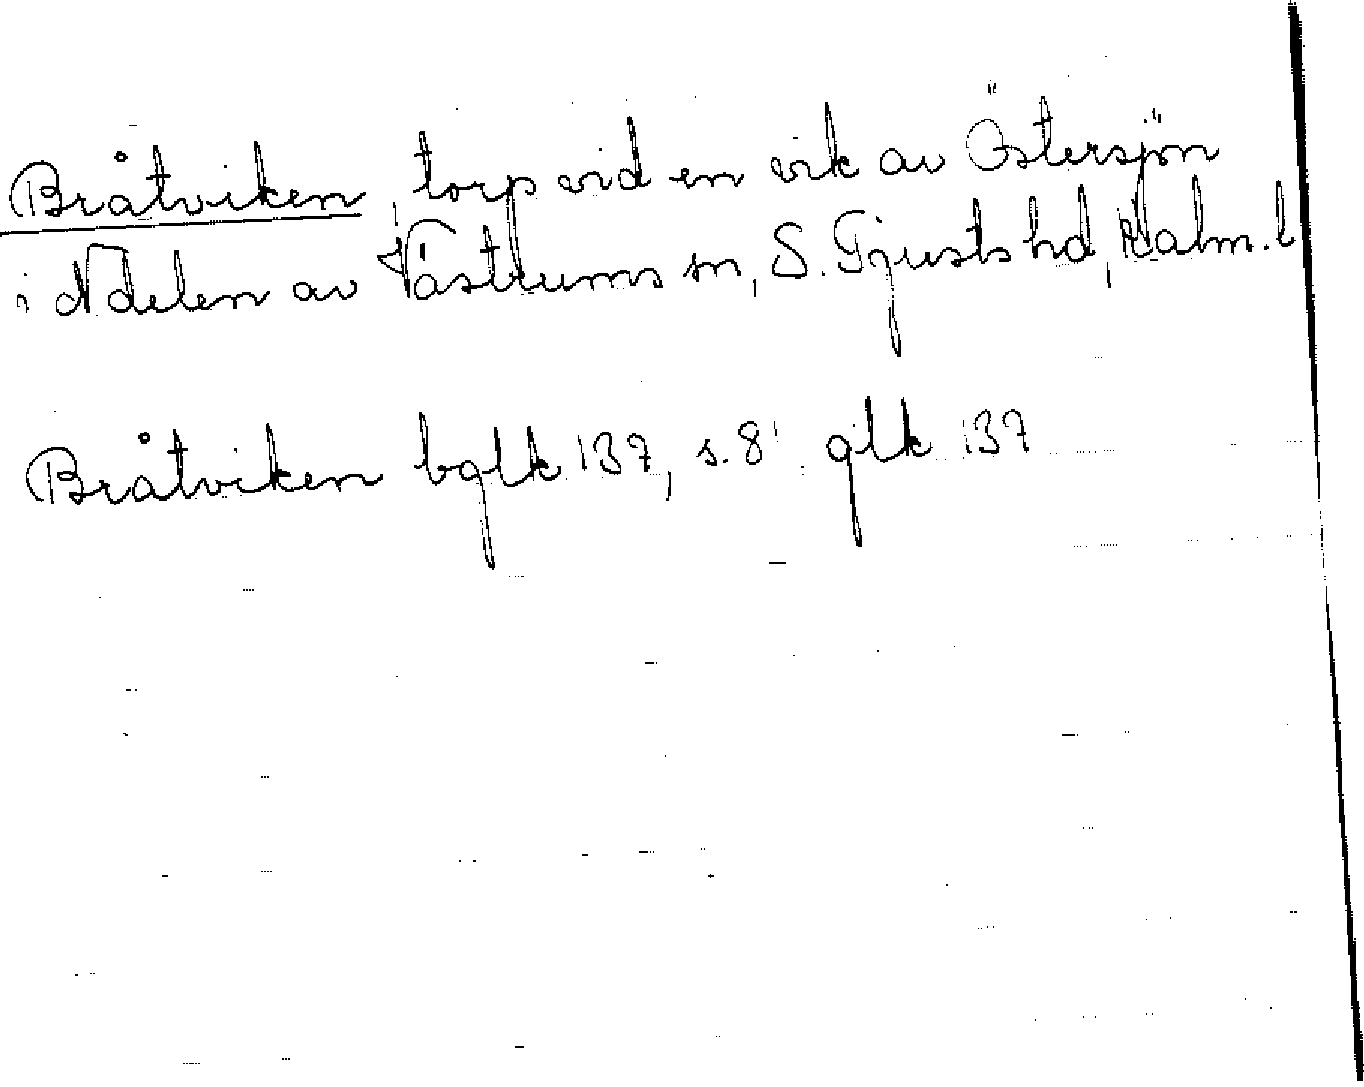 Bråtviken, torp vid en vik av Östersjön
i N delen av Västrums sn, S. Tjusts hd, Kalm. l
Bråtviken bglk 137, s. 8 glk 137